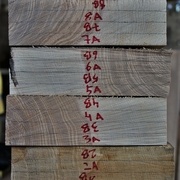 8B
8A
7B
7A
6B
6A
5B
5A
4B
4A
3B
3A
2B
2A